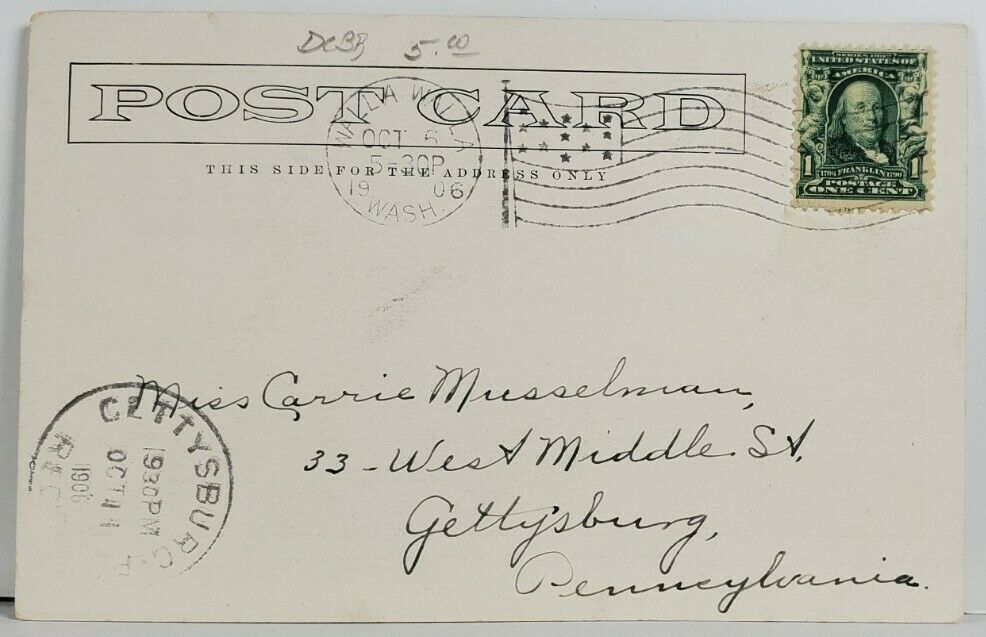 DCBR 5.00
POST CARD
THIS SIDE FOR THE ADDRESS ONLY
WALLA WALLA
OCT 6
5-30P
19 06
WASH.
SERIES 1902
UNITED STATES OF
AMERICA
1790 FRANKLIN 1790
1 POSTAGE 1
ONE CENT
Miss Carrie Musselman,
33-West Middle St,
Gettysburg,
Pennsylvania.
GETTYSBURG
REC'D
930PM
OCT 11
1906